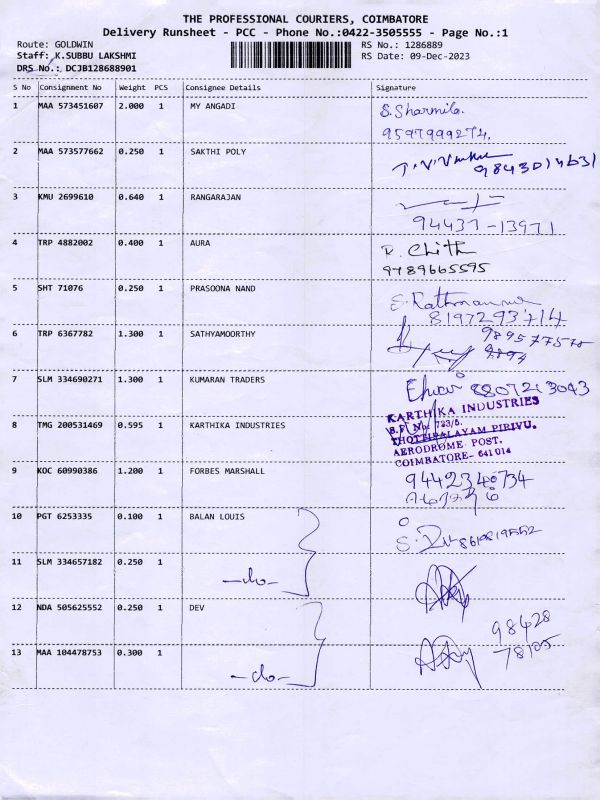 THE PROFESSIONAL COURIERS, COIMBATORE
Delivery Runsheet - PCC - Phone No.:0422-3505555 - Page No.:1
Route: GOLDWIN
RS No.: 1286889
Staff: K.SUBBU LAKSHMI
RS Date: 09-Dec-2023
DRS No.: DCJB128688901
S No Consignment No Weight PCS Consignee Details Signature
1 MAA 573451607 2.000 1 MY ANGADI S. Sharmila.
9597999274.
2 MAA 573577662 0.250 1 SAKTHI POLY
9843014631
3 KMU 2699610 0.640 1 RANGARAJAN
94437-13971
4 TRP 4882002 0.400 1 AURA
9789665595
5 SHT 71076 0.250 1 PRASOONA NAND
8197293714
6 TRP 6367782 1.300 1 SATHYAMOORTHY
7 SLM 334690271 1.300 1 KUMARAN TRADERS 8807213043
8 TMG 200531469 0.595 1 KARTHIKA INDUSTRIES
KARTHIKA INDUSTRIES
S.F. No. 723/5.
THOTTIPALAYAM PIRIVU.
AERODROME POST.
COIMBATORE- 641 014
9 KOC 60990386 1.200 1 FORBES MARSHALL 9442340734
10 PGT 6253335 0.100 1 BALAN LOUIS
11 SLM 334657182 0.250 1 -do-
12 NDA 505625552 0.250 1 DEV
98428
78105
13 MAA 104478753 0.300 1 -do-